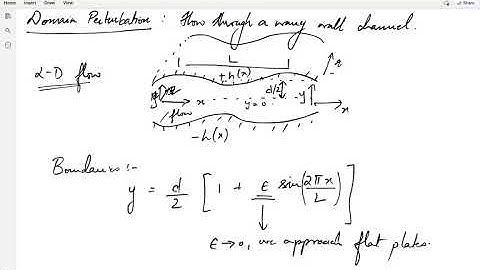 Home Insert Draw View
Domain Perturbation : Flow through a wavy wall channel.
L
2-D flow
+h(x)
d/2
y
x
y=0
y
x
flow
-h(x)
Boundaries :-
y = d/2 [ 1 + ε sin(2πx/L) ]
ε→0, we approach flat plates.